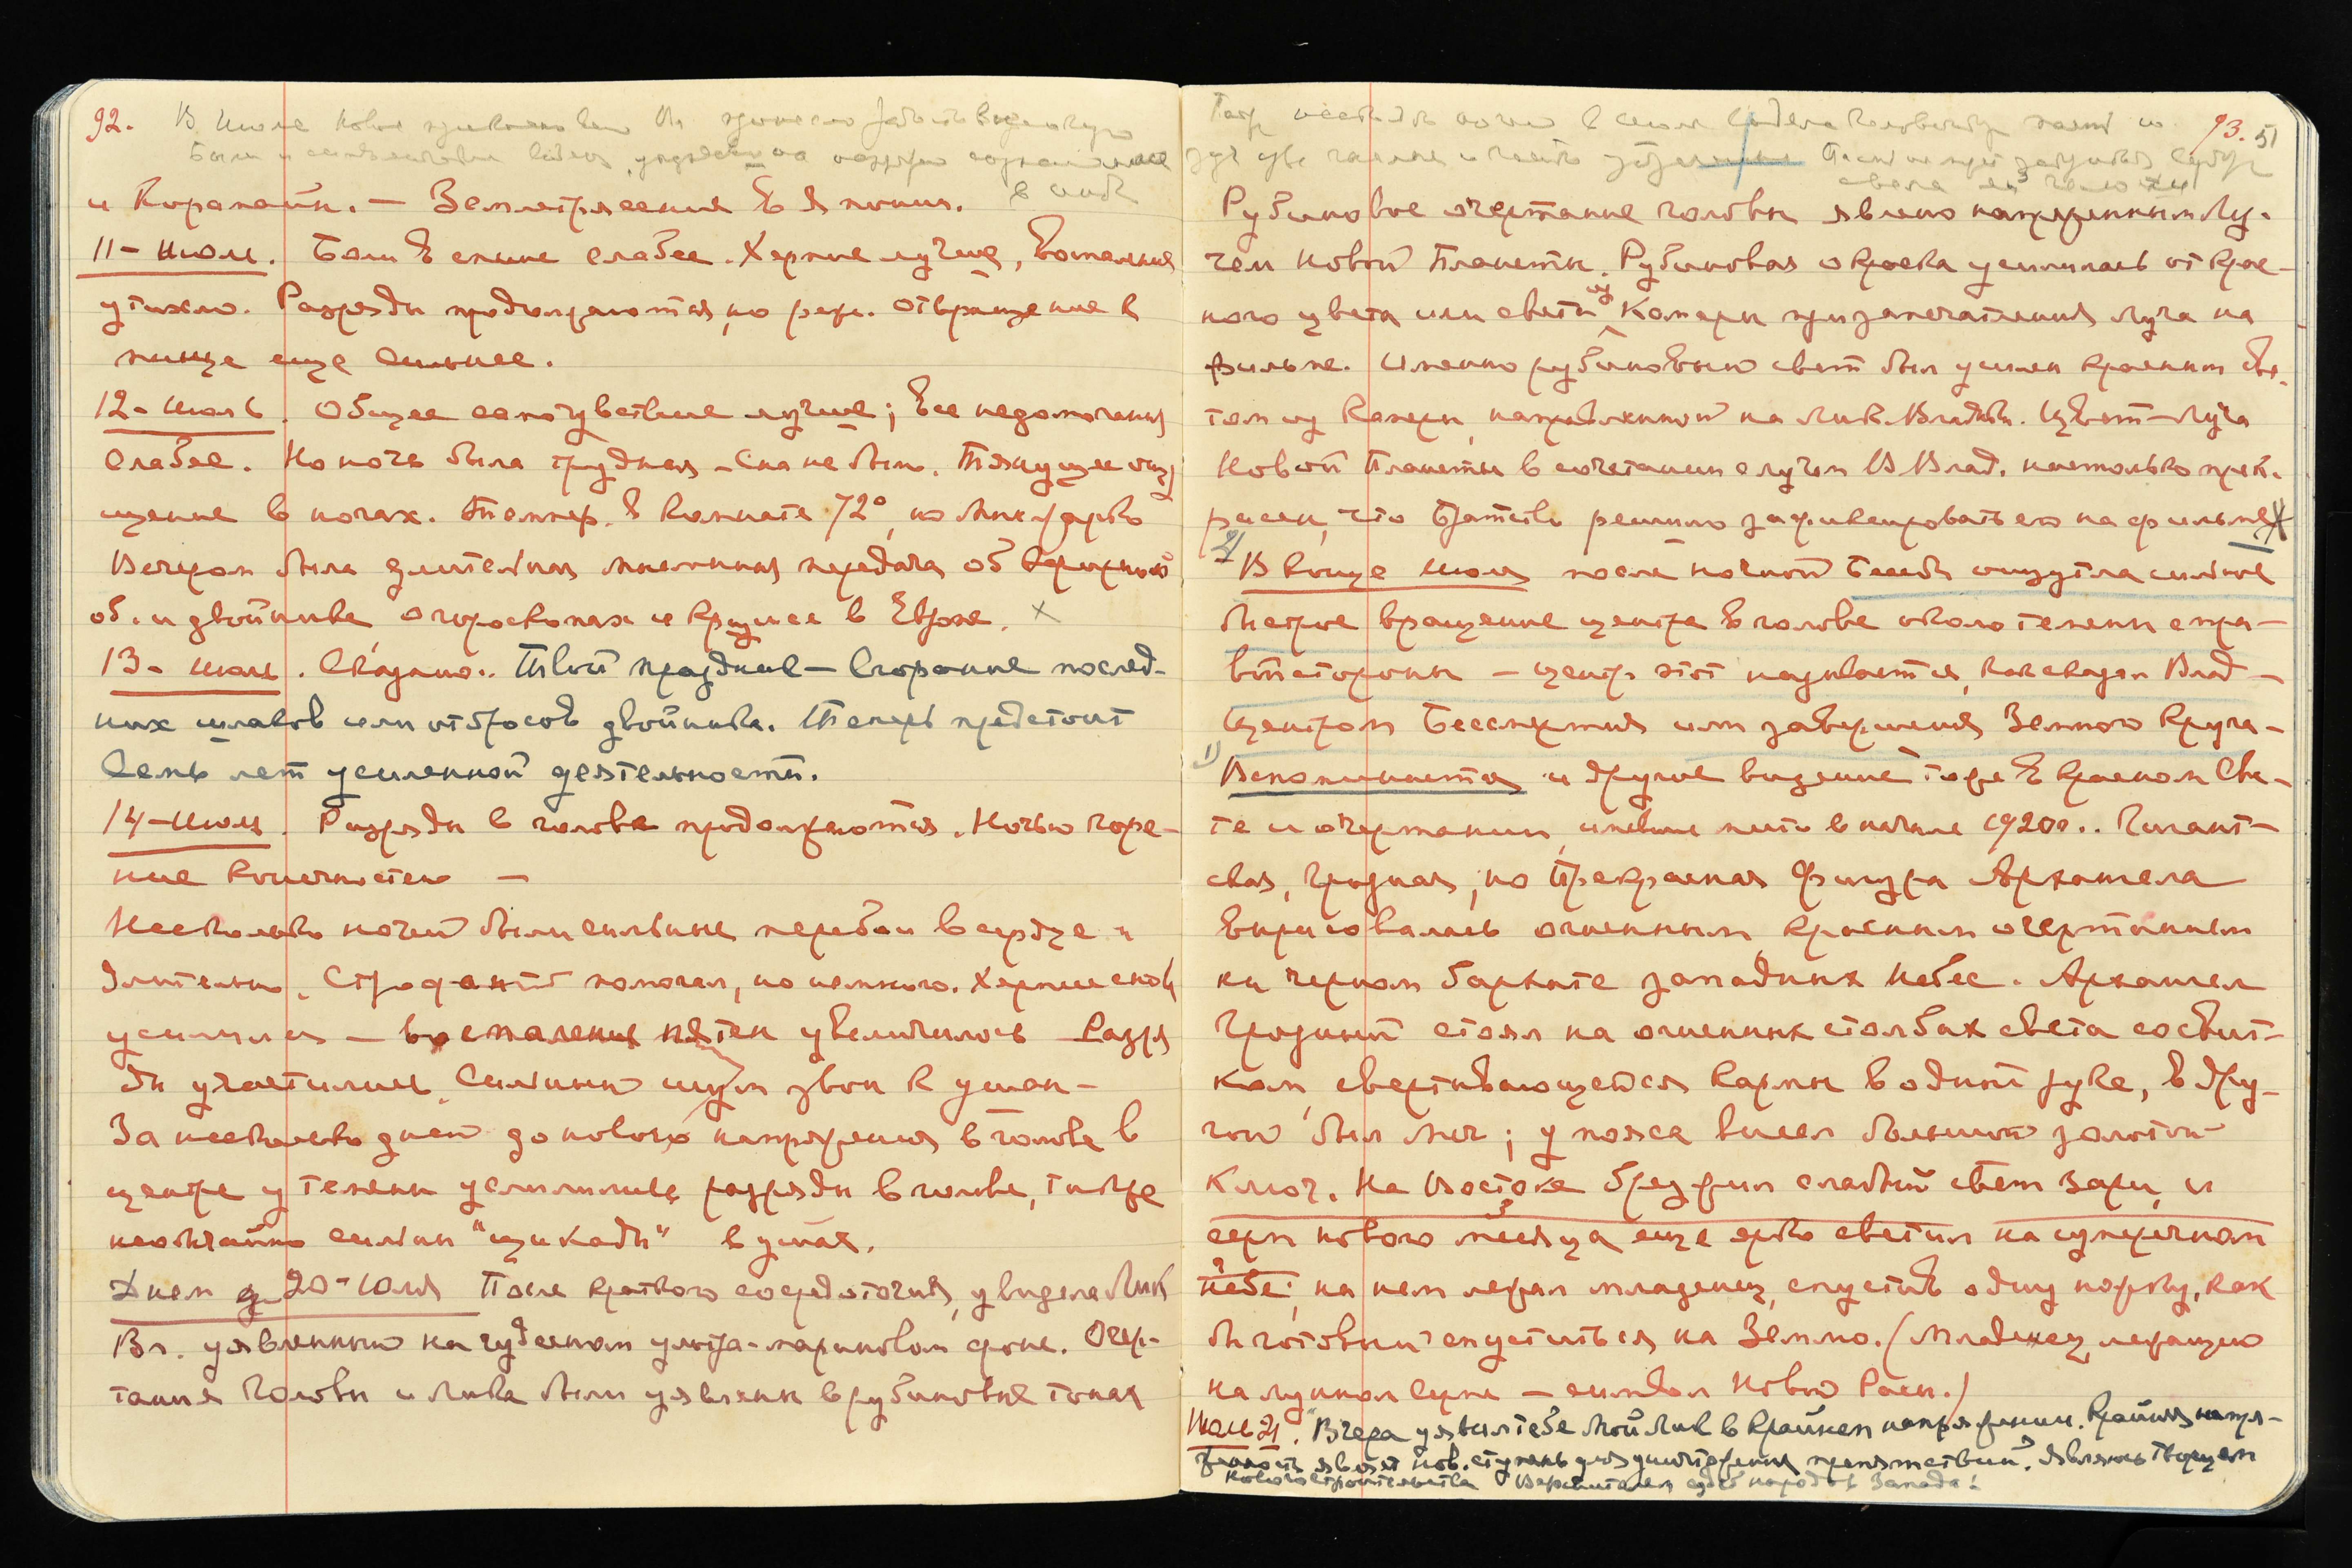 92. В июле новое
были
в
и Кораками. — Землетрясения в Японии.
11 – июля. Боли в спине слабее. Херпие лучше, воспаление
утихло. Разряды продолжаются, но реже. Отвращение к
пище еще сильнее.
12 – июль. Общее самочувствие лучше; Все недомогания
слабее. Но ночь была трудная – Сна не было. Тянущее ощу
щение в ногах. Темпер. в комнате 72°, но мне жарко
Вечером была длительная мысленная передача об
об. и двойнике, о гороскопах и кризисе в Европе. х
13 – июля. Сказано.. Твой праздник – Сгорание послед-
них шлаков или отбросов двойника. Теперь предстоит
Семь лет усиленной деятельности.
14 – июля. Разряды в голове продолжаются. Ночью горе-
ние конечностей —
Несколько ночей были сильные перебои в сердце и
длительно. Строфант помогал, но немного. Херпие снова
усилился – воспаление пятен увеличилось – Разря
ды участились. Сильный шум звон в ушах –
За несколько дней до нового напряжения в голове в
центре у темени усилились разряды в голове, также
необычайно сильны "цикады" в ушах.
Днем 20 – Июля После краткого сосредоточия, увидела Лик
Вл. уявленный на чудесном ультра-мариновом фоне. Очер-
тания головы и Лика были уявлены в рубиновых тонах
93. 51
Рубиновое очертание головы явлено напряженным Лу-
чем Новой Планеты. Рубиновая окраска усилилась от крас-
ного цвета или света из Камеры при запечатлении луча на
фильме. Именно рубиновый свет был усилен красным све-
том из Камеры, направленной на Лик Владыки. Цвет – Луча
Новой Планеты в сочетании с лучом В Влад. настолько прек-
расен, что Братство решило зафиксировать его на фильме х
2/ В конце июля после ночной Беседы ощутила сильное
быстрое вращение центра в голове около темени с пра-
вой стороны – центр этот называется, как сказал Влад –
Центром Бессмертия или завершения Земного Круга –
1) Вспоминается и другое видение тоже в красном Све-
те и очертании, имевшее место в начале 1920 г.. Гигант-
ская, Грозная, но Прекрасная Фигура Архангела
вырисовалась огненным красным очертанием
на черном бархате западных небес. Архангел
Грозный стоял на огненных столбах света со свит-
ком, свертывающейся Кармы в одной руке, в дру-
гой был меч; у пояса висел большой золотой
Ключ. На Востоке брезжил слабый свет Зари, и
серп нового месяца еще ярко светил на сумеречном
небе; на нем лежал младенец, спустив одну ножку, как
бы готовый спуститься на Землю. (Младенец, лежащий
на лунном Серпе – символ Новой Расы.)
Июль 21. "Вчера уявил тебе Мой Лик в крайнем напряжении. Крайняя напря-
женность явит нов. ступень для уничтожения препятствий. Являюсь Творцом
нового строительства Вершителем судеб народов Запада!